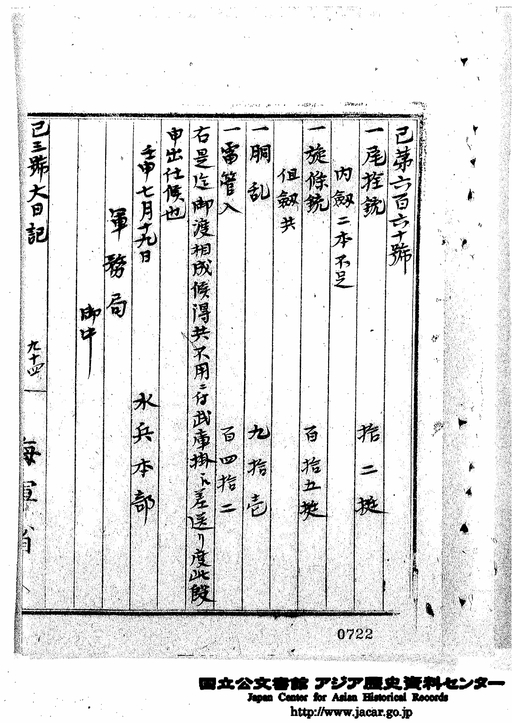 己第六百六十號
一尾栓銃 拾二挺
内劔二本不足
一旋條銃 百拾五挺
但劔共
一胴乱 九拾壱
一雷管入 百四拾二
右是迄御渡相成候得共不用ニ付武庫掛へ差送り度此段
申出仕候也
壬申七月十九日 水兵本部
軍務局
御中
己三號大日記 九十四 海軍省
0722
国立公文書館 アジア歴史資料センター
Japan Center for Asian Historical Records
http://www.jacar.go.jp